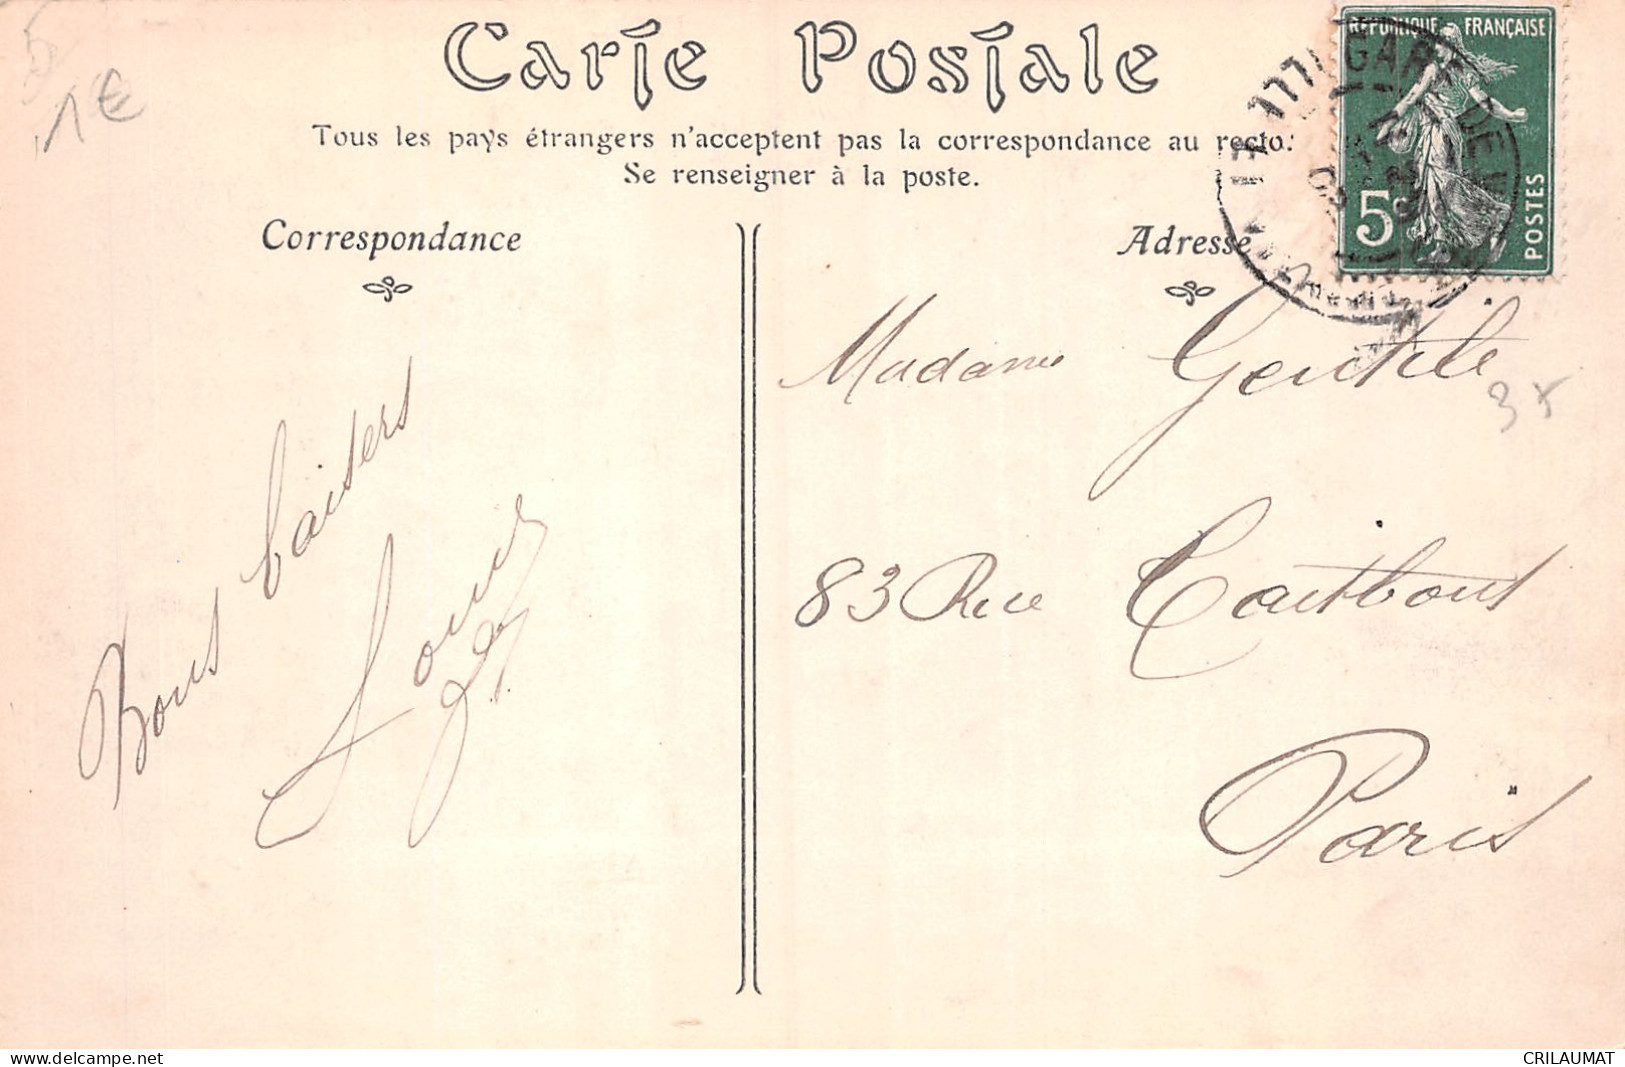 Carte Postale
Tous les pays étrangers n'acceptent pas la correspondance au recto.
Se renseigner à la poste.
Correspondance
Adresse
RÉPUBLIQUE FRANÇAISE
5c
POSTES
GARE DE
5
1€
Madame Gentile
3x
83 Rue Taitbout
Paris
Bons baisers
Louis
www.delcampe.net
CRILAUMAT